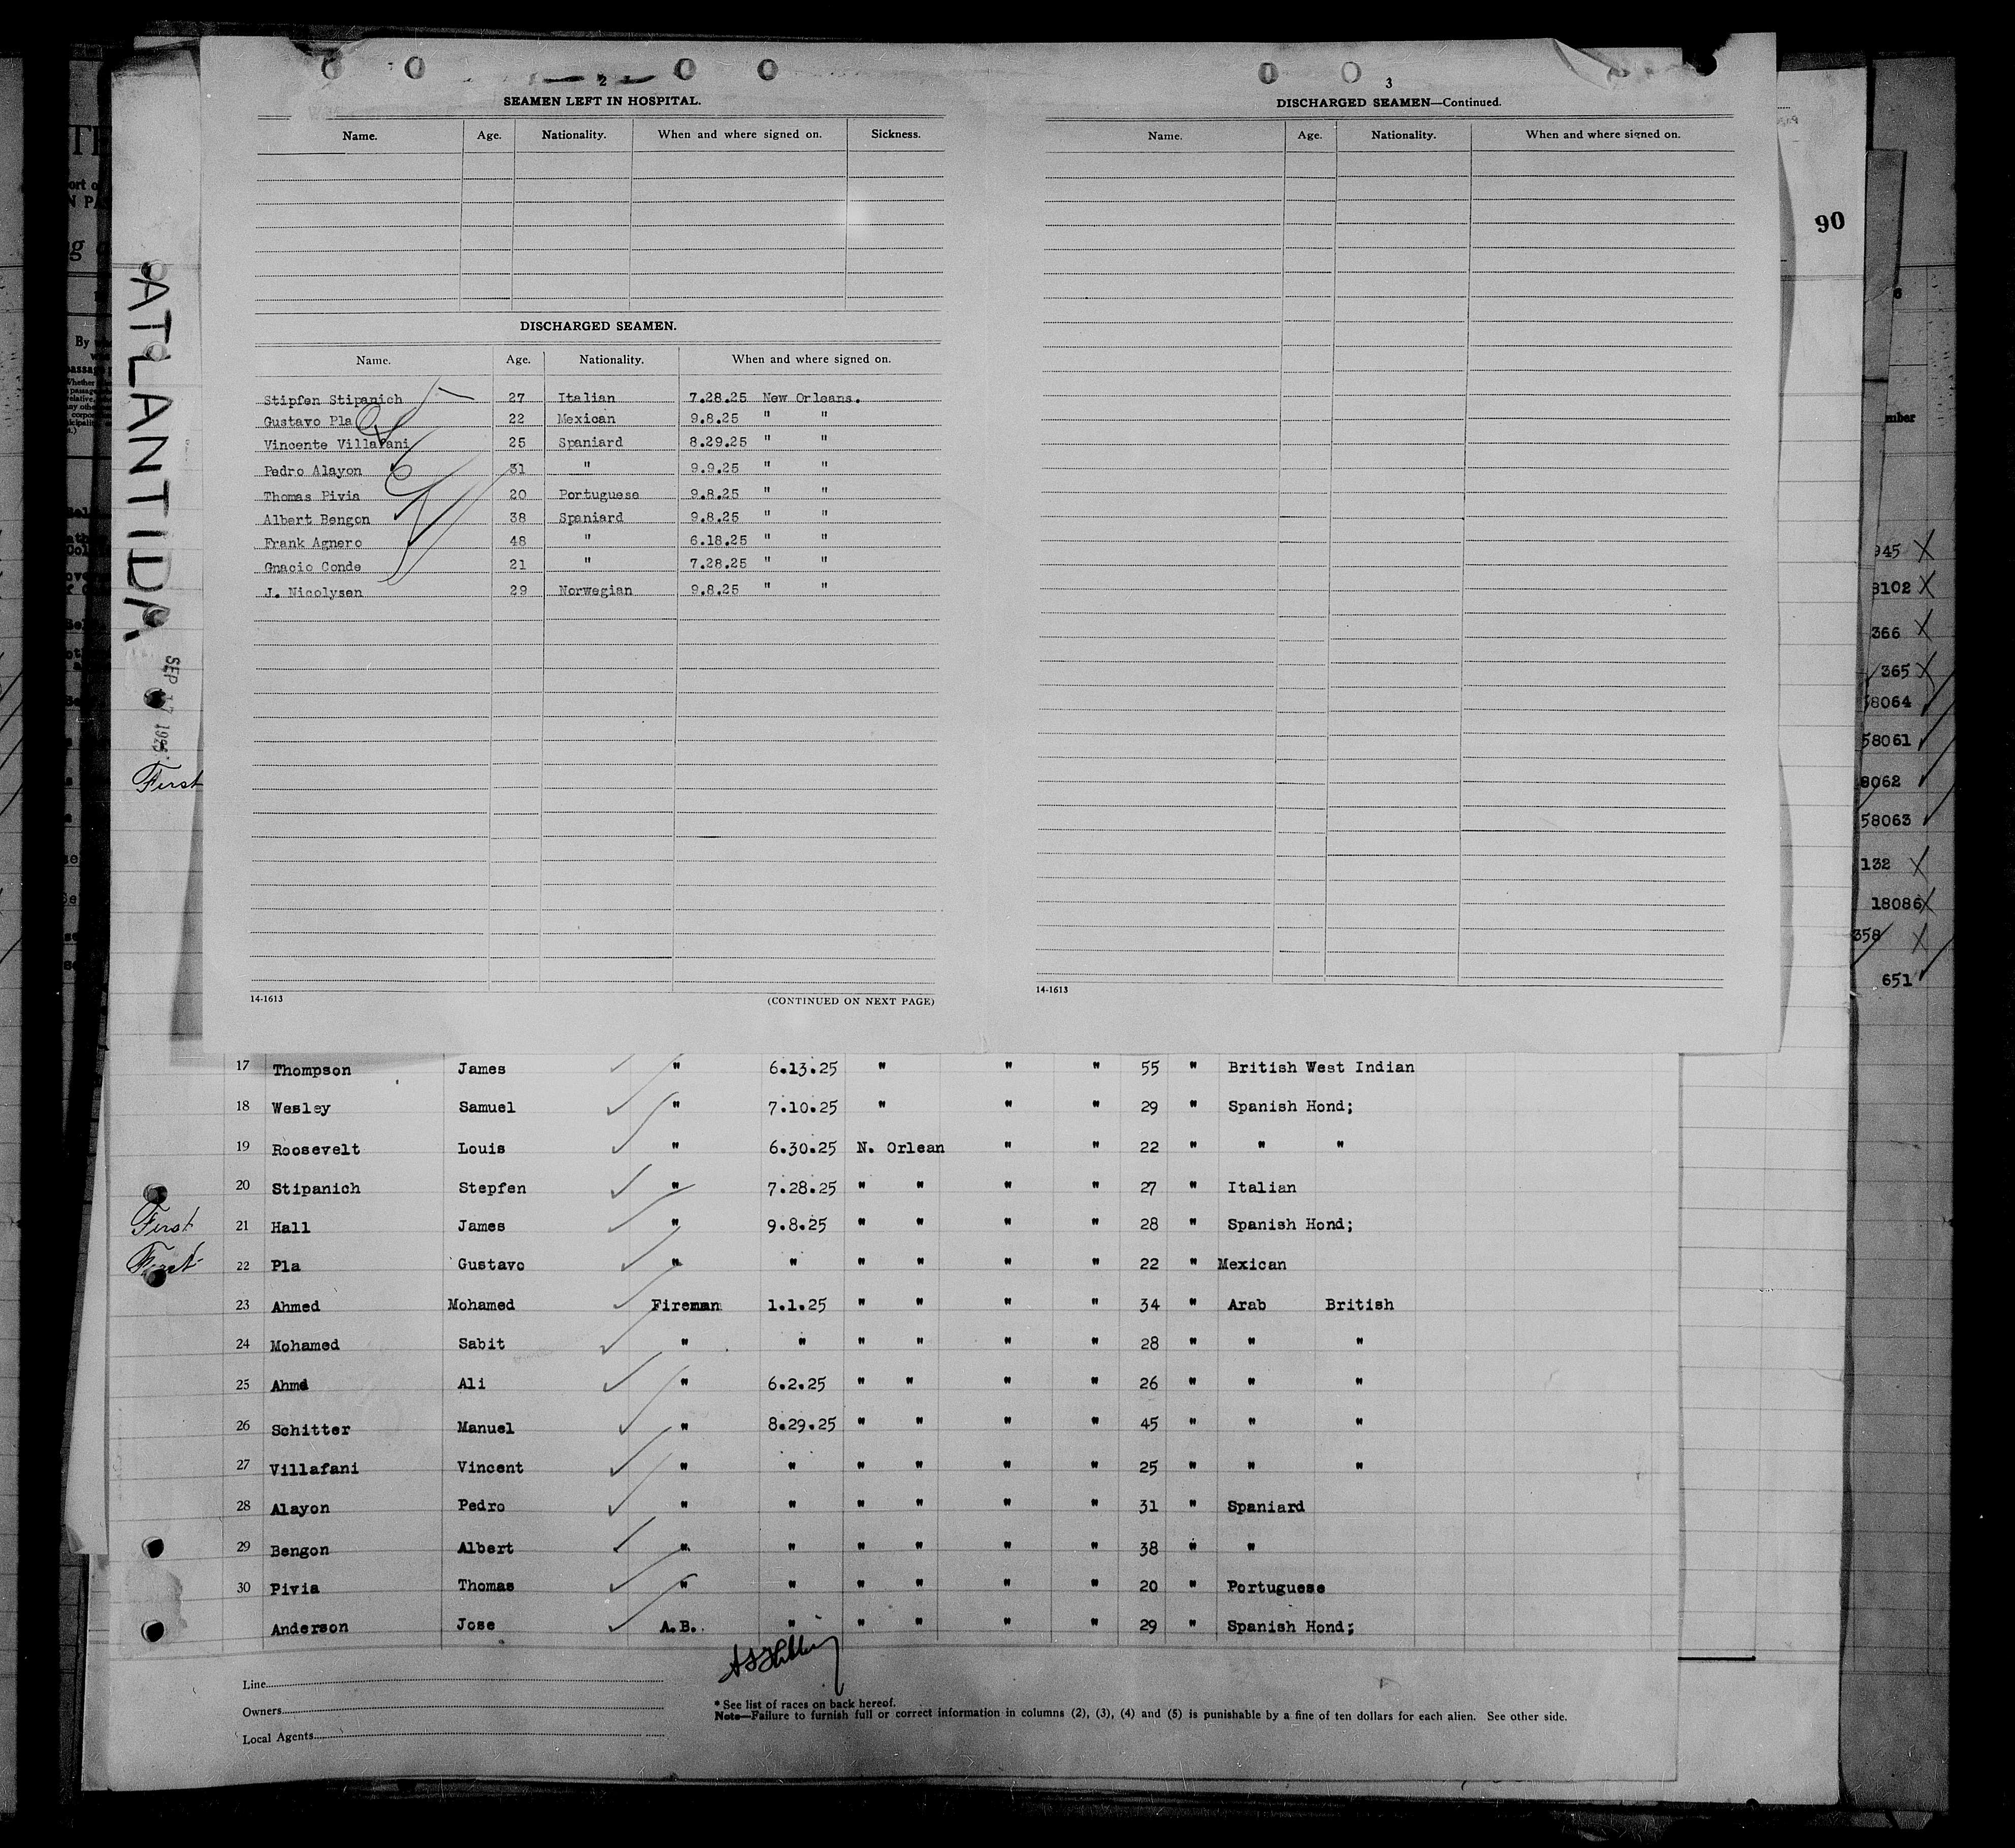 2
SEAMEN LEFT IN HOSPITAL.
Name. Age. Nationality. When and where signed on. Sickness.
DISCHARGED SEAMEN.
Name. Age. Nationality. When and where signed on.
Stipfen Stipanich 27 Italian 7.28.25 New Orleans.
Gustavo Pla 22 Mexican 9.8.25 " "
Vincente Villafani 25 Spaniard 8.29.25 " "
Pedro Alayon 31 " 9.9.25 " "
Thomas Pivia 20 Portuguese 9.8.25 " "
Albert Bengon 38 Spaniard 9.8.25 " "
Frank Agnero 48 " 6.18.25 " "
Gnacio Conde 21 " 7.28.25 " "
J. Nicolysen 29 Norwegian 9.8.25 " "
14-1613 (CONTINUED ON NEXT PAGE)
3
DISCHARGED SEAMEN—Continued.
Name. Age. Nationality. When and where signed on.
14-1613
90
ATLANTIDA
SEP 17 1925
First
945
8102
366
365
58064
58061
8062
58063
132
18086
358
651
17 Thompson James " 6.13.25 " " " 55 " British West Indian
18 Wesley Samuel " 7.10.25 " " " 29 " Spanish Hond;
19 Roosevelt Louis " 6.30.25 N. Orlean " " 22 " " "
20 Stipanich Stepfen " 7.28.25 " " " " 27 " Italian
First 21 Hall James " 9.8.25 " " " " 28 " Spanish Hond;
First 22 Pla Gustavo " " " " " " 22 " Mexican
23 Ahmed Mohamed Fireman 1.1.25 " " " " 34 " Arab British
24 Mohamed Sabit " " " " " " 28 " " "
25 Ahmd Ali " 6.2.25 " " " " 26 " " "
26 Schitter Manuel " 8.29.25 " " " " 45 " " "
27 Villafani Vincent " " " " " " 25 " " "
28 Alayon Pedro " " " " " " 31 " Spaniard
29 Bengon Albert " " " " " " 38 " "
30 Pivia Thomas " " " " " " 20 " Portuguese
Anderson Jose A.B. " " " " " 29 " Spanish Hond;
Line
Owners
Local Agents
* See list of races on back hereof.
Note—Failure to furnish full or correct information in columns (2), (3), (4) and (5) is punishable by a fine of ten dollars for each alien. See other side.